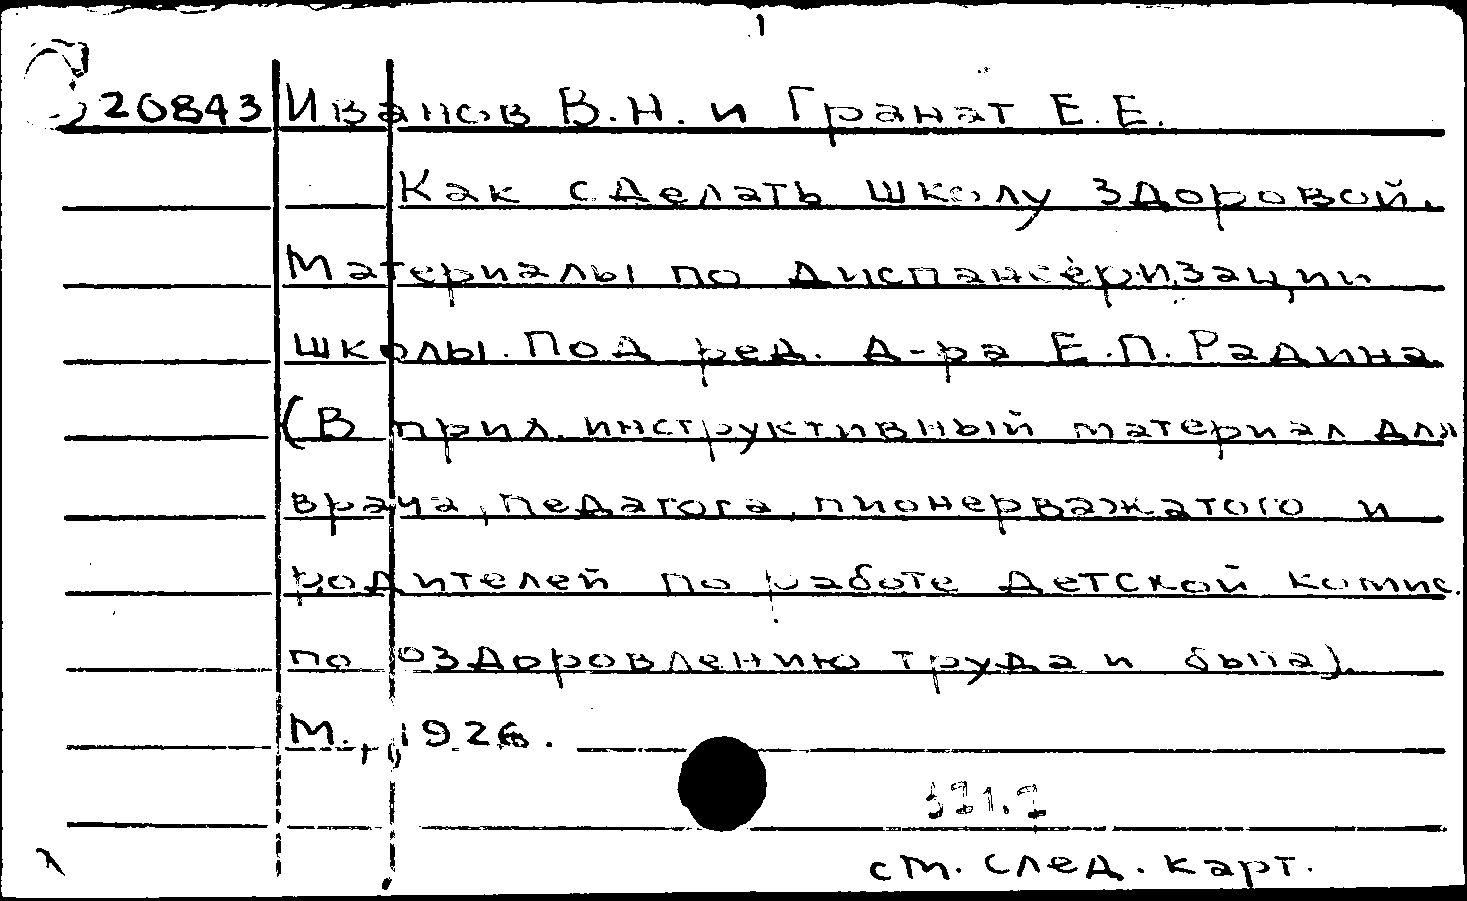 20843 Иванов В.Н. и Гранат Е.Е.
Как сделать школу здоровой.
Материалы по диспансеризации
школы. Под ред. д-ра Е.П. Радина
(В прил. инструктивный материал для
врача, педагога, пионервожатого и
родителей по работе детской комис.
по оздоровлению труда и быта).
М., 1926.
см. след. карт.